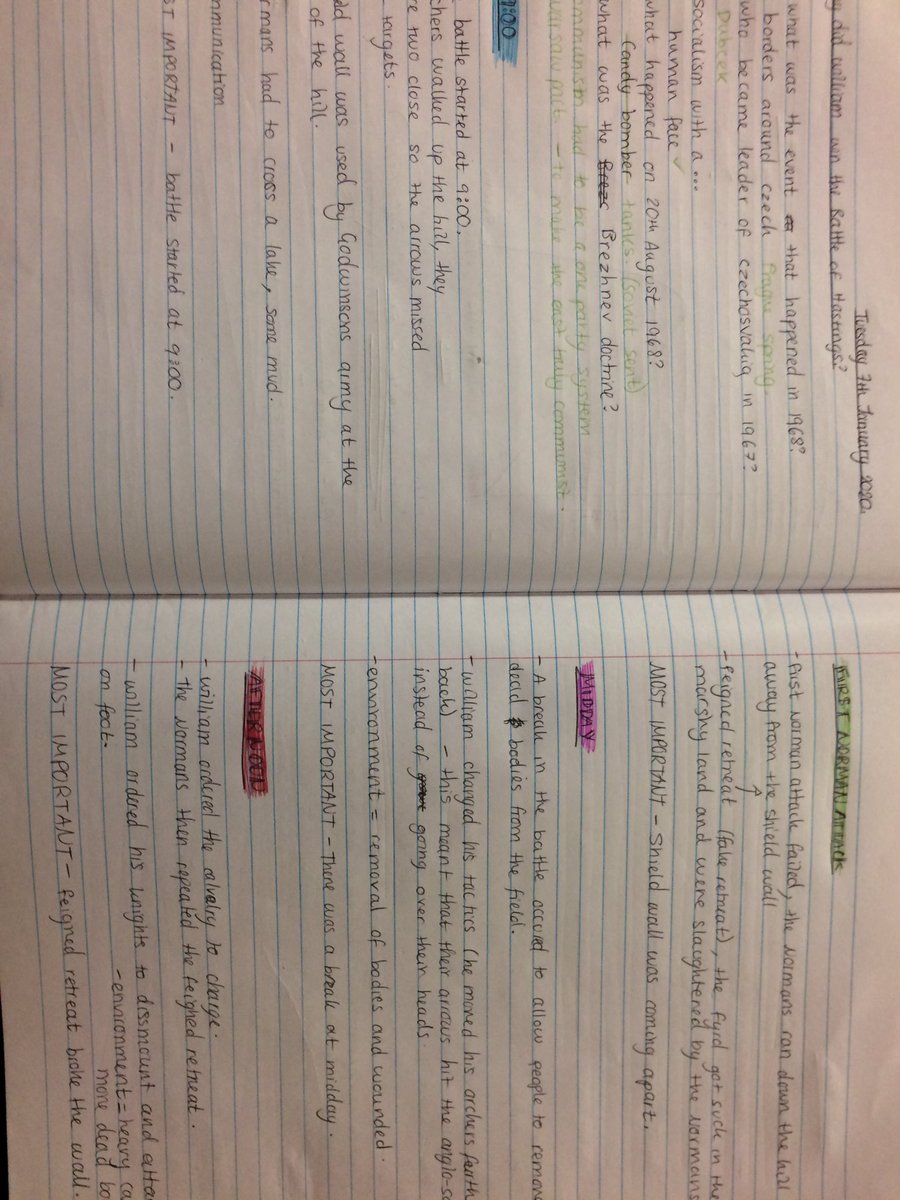 Tuesday 7th January 2020.
did william win the Battle of Hastings?
what was the event that happened in 1968?
borders around czech Prague spring.
who became leader of czechosvakia in 1967?
Dubcek
socialism with a...
human face ✓
what happened on 20th August 1968?
Candy bomber tanks. (soviet sent)
what was the Brezhnev doctrine?
communism had to be a one party system
warsaw pact - to make the east truly communist.
9:00
battle started at 9:00.
walked up the hill, they
two close so the arrows missed
targets.
wall was used by Godwinsons army at the
of the hill.
had to cross a lake, some mud.
IMPORTANT - battle started at 9:00.
FIRST NORMAN ATTACK
- first Norman attack failed, the Normans ran down the hill
away from the shield wall
- feigned retreat (fake retreat), the fyrd got suck in the
marshy land and were slaughtered by the Normans
MOST IMPORTANT - Shield wall was coming apart.
MIDDAY
- A break in the battle occured to allow people to remove
dead bodies from the field.
- william changed his tactics (he moved his archers
back) - this meant that their arrows hit the
instead of going over their heads.
- environment = removal of bodies and wounded.
MOST IMPORTANT - There was a break at midday.
AFTERNOON
- william ordered the calvalry to charge.
- the Normans then repeated the feighed retreat.
- william ordered his knights to dissmount and
on foot.
- environment = heavy
more dead
MOST IMPORTANT - feigned retreat broke the wall.